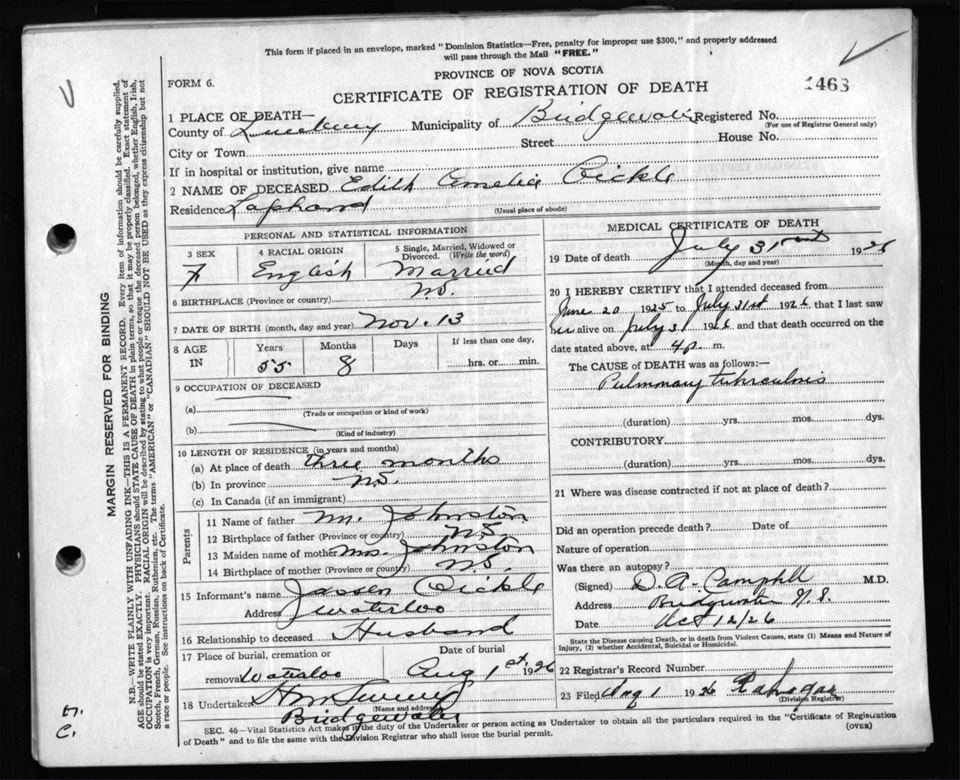 This form if placed in an envelope, marked "Dominion Statistics—Free, penalty for improper use $300," and properly addressed
will pass through the Mail "FREE."
PROVINCE OF NOVA SCOTIA
FORM 6.
CERTIFICATE OF REGISTRATION OF DEATH
1463
1 PLACE OF DEATH—
County of Lunenburg Municipality of Bridgewater Registered No.
(For use of Registrar General only)
City or Town Street House No.
If in hospital or institution, give name
2 NAME OF DECEASED Edith Amelia Oickle
Residence Lapland
(Usual place of abode)
PERSONAL AND STATISTICAL INFORMATION
3 SEX 4 RACIAL ORIGIN 5 Single, Married, Widowed or Divorced. (Write the word)
F English Married
6 BIRTHPLACE (Province or country) N.S.
7 DATE OF BIRTH (month, day and year) Nov. 13
8 AGE IN Years Months Days If less than one day,
55 8 hrs. or min.
9 OCCUPATION OF DECEASED
(a)
(Trade or occupation or kind of work)
(b)
(Kind of industry)
10 LENGTH OF RESIDENCE (in years and months)
(a) At place of death three months
(b) In province N.S.
(c) In Canada (if an immigrant)
Parents
11 Name of father M. Johnston
12 Birthplace of father (Province or country) N.S.
13 Maiden name of mother Mrs. Johnston
14 Birthplace of mother (Province or country) N.S.
15 Informant's name Oickle
Address Waterloo
16 Relationship to deceased Husband
17 Place of burial, cremation or removal Waterloo
Date of burial Aug 1st 1926
18 Undertaker
(Name and address)
Bridgewater
MEDICAL CERTIFICATE OF DEATH
19 Date of death July 31st 1926
(Month, day and year)
20 I HEREBY CERTIFY that I attended deceased from
June 20 1925 to July 31st 1926 that I last saw
her alive on July 31 1926 and that death occurred on the
date stated above, at 4 p. m.
The CAUSE of DEATH was as follows:—
Pulmonary tuberculosis
(duration) yrs. mos. dys.
CONTRIBUTORY
(duration) yrs. mos. dys.
21 Where was disease contracted if not at place of death?
Did an operation precede death? Date of
Nature of operation
Was there an autopsy?
(Signed) D. A. Campbell M.D.
Address Bridgewater N.S.
Date Oct 12/26
State the Disease causing Death, or in death from Violent Causes, state (1) Means and Nature of
Injury, (2) whether Accidental, Suicidal or Homicidal.
22 Registrar's Record Number
23 Filed Aug 1 1926
(Division Registrar)
SEC. 46—Vital Statistics Act makes it the duty of the Undertaker or person acting as Undertaker to obtain all the particulars required in the "Certificate of Registration
of Death" and to file the same with the Division Registrar who shall issue the burial permit.
(OVER)
MARGIN RESERVED FOR BINDING
N.B.—WRITE PLAINLY WITH UNFADING INK—THIS IS A PERMANENT RECORD. Every item of information should be carefully supplied.
AGE should be stated EXACTLY. PHYSICIANS should STATE CAUSE OF DEATH in plain terms, so that it may be properly classified. Exact statement of
OCCUPATION is very important. RACIAL ORIGIN will be described by stating to what people or tongue the deceased person belonged, whether English, Irish,
Scotch, French, German, Russian, Ruthenian, etc. The terms "AMERICAN" or "CANADIAN" SHOULD NOT BE USED as they express citizenship but not
a race or people. See instructions on back of Certificate.